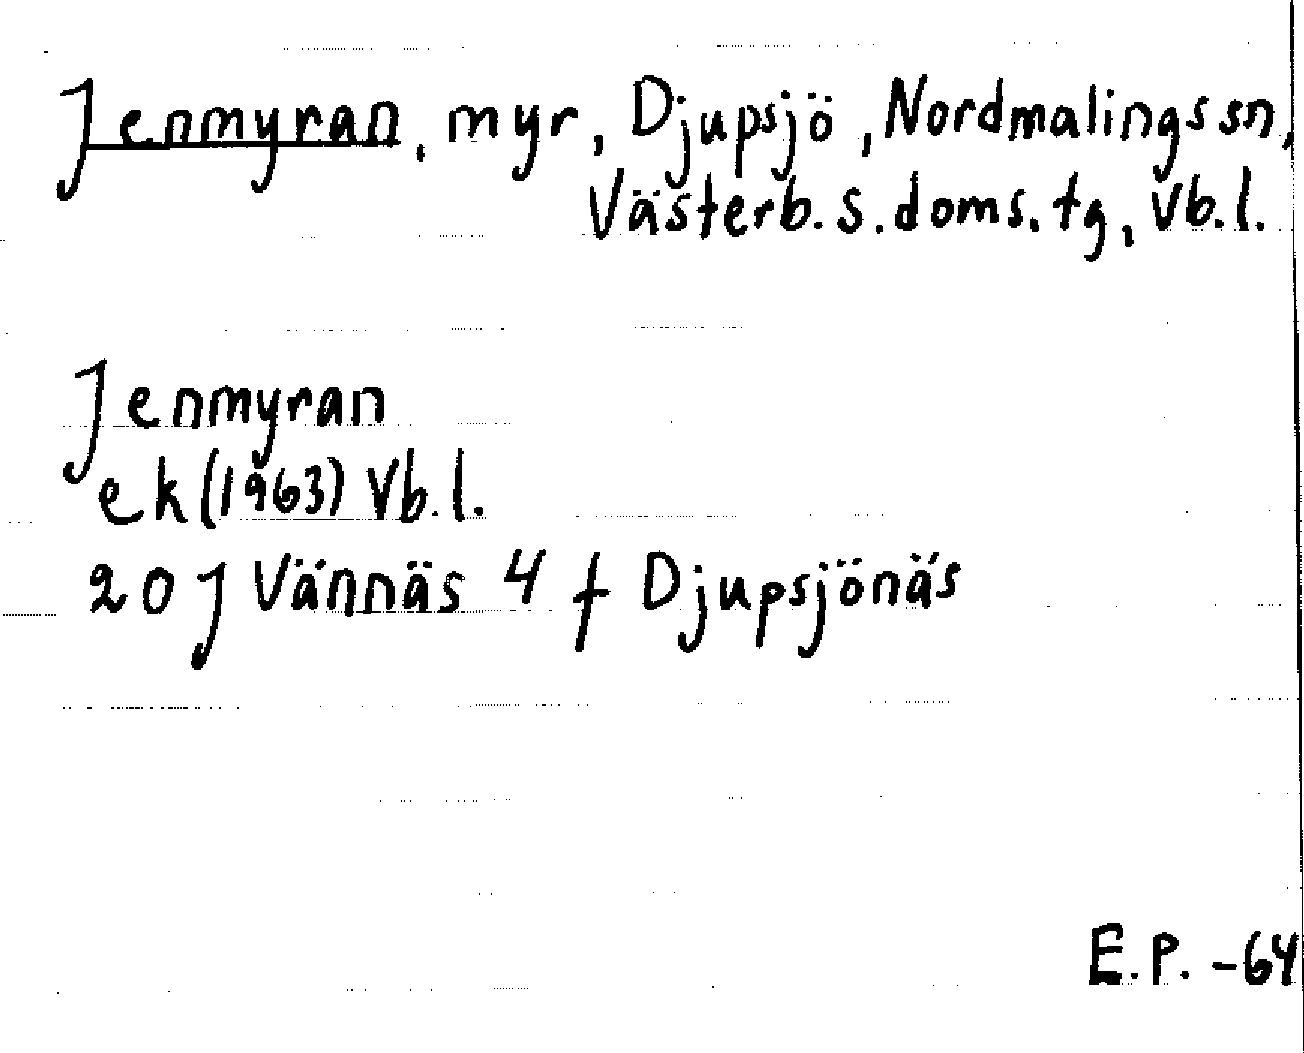 Jenmyran, myr, Djupsjö, Nordmalings sn,
Västerb. s. doms. tg, Vb. l.
Jenmyran
ek (1963) Vb. l.
20 J Vännäs 4 f Djupsjönäs
E.P. -64